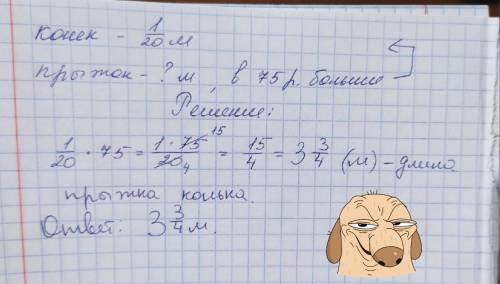 конек - 1/20 м
прыжок - ? м , в 75 р. больше
Решение:
1/20 · 75 = 1 · 75 15 / 20 4 = 15/4 = 3 3/4 (м) - длина
прыжка конька.
Ответ: 3 3/4 м.